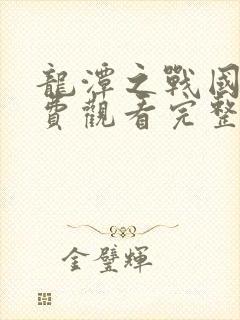 龍潭之戰國
費觀看完整
金璧輝